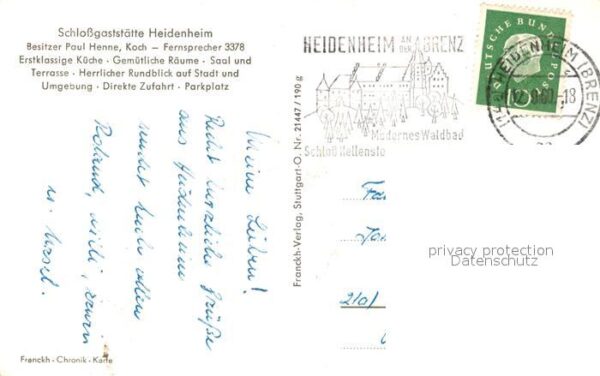 Schloßgaststätte Heidenheim
Besitzer Paul Henne, Koch — Fernsprecher 3378
Erstklassige Küche · Gemütliche Räume · Saal und
Terrasse · Herrlicher Rundblick auf Stadt und
Umgebung · Direkte Zufahrt · Parkplatz
Meine Lieben!
Recht herzliche Grüße
aus Heidenheim
sendet Euch allen
Roland,
u. Ursel.
Franckh · Chronik · Karte
Franckh-Verlag, Stuttgart-O. Nr. 21447 / 190 g
HEIDENHEIM AN DER BRENZ
Modernes Waldbad
Schloß Hellenste
DEUTSCHE BUNDESPOST
10
HEIDENHEIM (BRENZ)
-18
Fam
210
privacy protection
Datenschutz